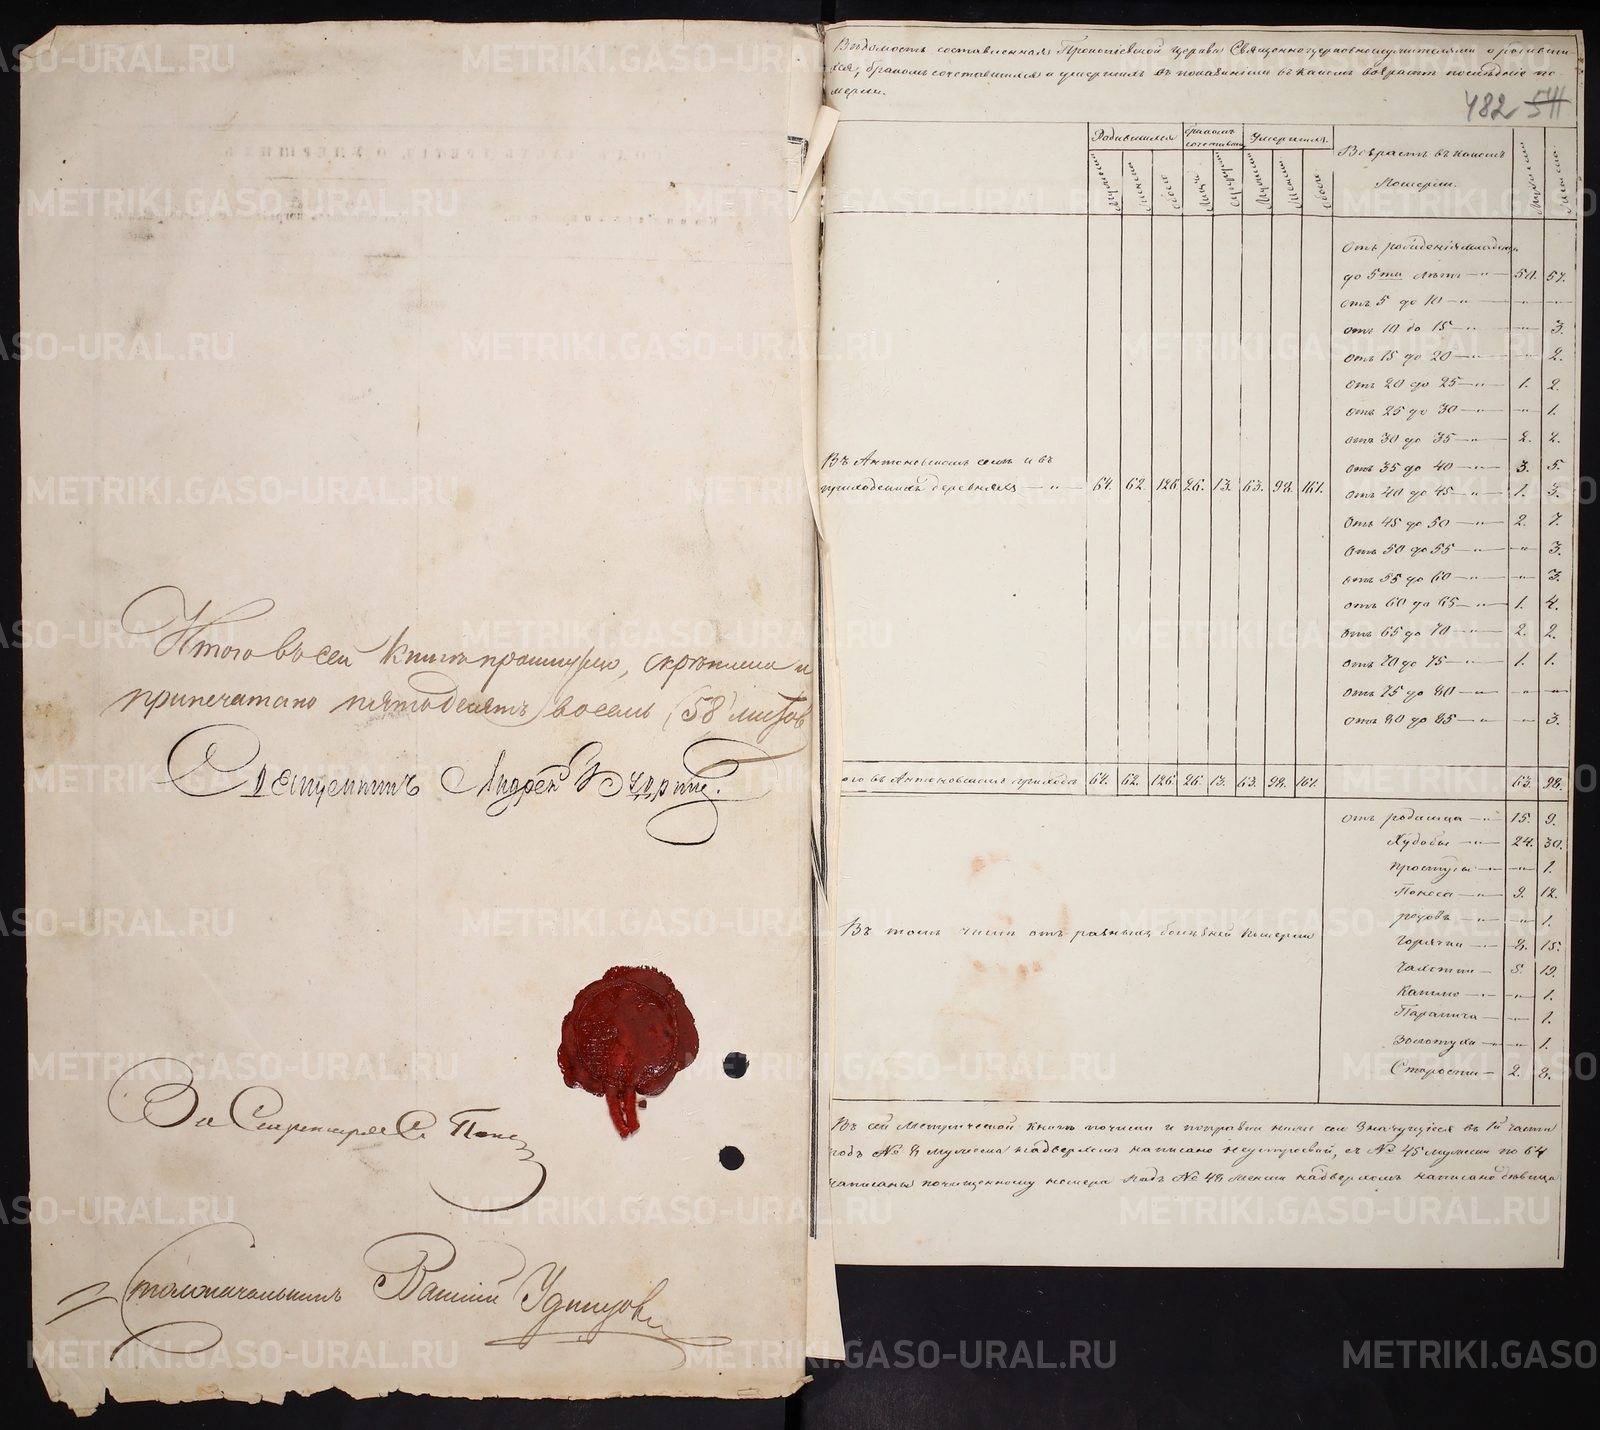 Итого въ сей книгѣ прошнуро, скрѣплено и
припечатано пятьдесятъ восемь (58) листов
Андрей
За Секретаря
Столоначальникъ
Вѣдомость составленная Прокопіевской церкви Священноцерковнослужителями о родивши
хся, бракомъ сочетавшихся и умершихъ съ показаніемъ въ какомъ возрастѣ послѣдніе по
мерли.
482 511
Родившихся бракомъ сочетавш Умершихъ Возрастъ въ какомъ
Померли.
Мужеска Женска обоего Лицъ Супруж Мужеска Женска обоего Мужеска Женска
отъ рожденія младенц.
до 5ти лѣтъ — 50. 57.
отъ 5 до 10 — " —
отъ 10 до 15 — " — 3.
отъ 15 до 20 — " — 2.
отъ 20 до 25 — " — 1. 2.
отъ 25 до 30 — " — 1.
отъ 30 до 35 — " — 2. 2.
отъ 35 до 40 — " — 3. 5.
отъ 40 до 45 — " — 1. 3.
отъ 45 до 50 — " — 2. 7.
отъ 50 до 55 — " — 3.
отъ 55 до 60 — " — 3.
отъ 60 до 65 — " — 1. 4.
отъ 65 до 70 — " — 2. 2.
отъ 70 до 75 — " — 1. 1.
отъ 75 до 80 — " —
отъ 80 до 85 — " — 3.
Въ Антоновскомъ селѣ и въ
приходскихъ деревняхъ — " — 64. 62. 126. 26. 13. 63. 98. 161.
ого въ Антоновскомъ приходѣ 64. 62. 126. 26. 13. 63. 98. 161. 63. 98.
Въ томъ числѣ отъ разныхъ болѣзней померли
отъ родимца — " — 15. 9.
Худобы — " — 24. 30.
простуды — " — 1.
Поноса — " — 9. 12.
родовъ — " — 1.
горячки — " — 8. 15.
Чахотки — 5. 19.
Кашлю — " — 1.
Паралича — " — 1.
Золотухи — " — 1.
Старости — 2. 8.
Въ сей Метрической книгѣ почистки и поправки какіе есть значущіеся въ 1й части
подъ № 8 мужеска надверхомъ написано съ № 45 мужеска по 64
написаны почищенному номера надъ № 48 женска надверхомъ написано дѣвица
METRIKI.GASO-URAL.RU